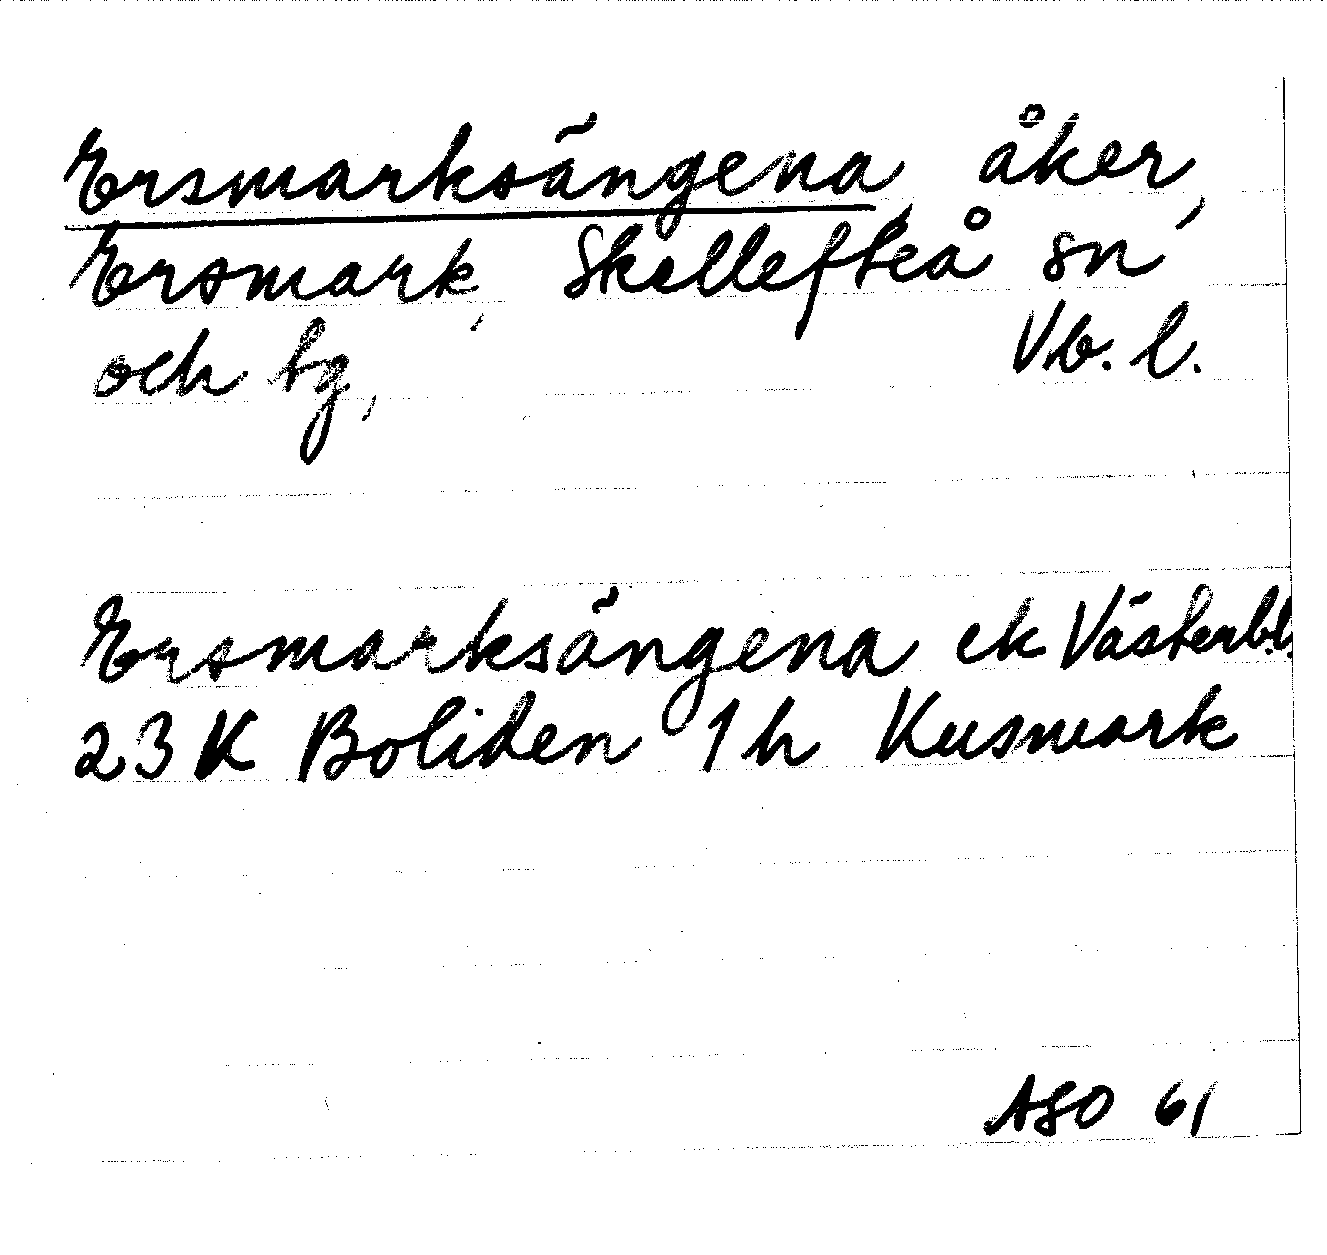 Ersmarksängena åker,
Ersmark, Skellefteå sn
och tg, Vb. l.
Ersmarksängena ek Västerb.l.
23 K Boliden 1 h Kusmark
ASO 61